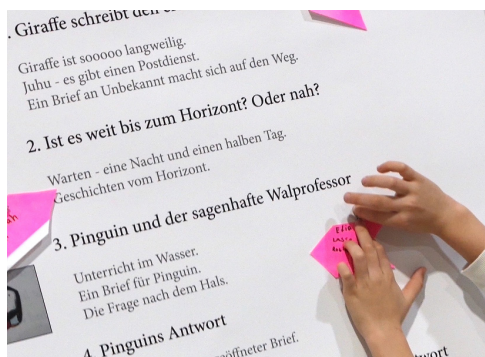 . Giraffe schreibt den
Giraffe ist sooooo langweilig.
Juhu - es gibt einen Postdienst.
Ein Brief an Unbekannt macht sich auf den Weg.
2. Ist es weit bis zum Horizont? Oder nah?
Warten - eine Nacht und einen halben Tag.
Geschichten vom Horizont.
3. Pinguin und der sagenhafte Walprofessor
Unterricht im Wasser.
Ein Brief für Pinguin.
Die Frage nach dem Hals.
4. Pinguins Antwort
Brief.